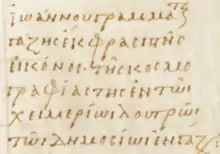 ἰωάννου γραμματ
γάζης ἐκφρασις τῆς
εἰκόνος τῆς κοσμο
γραφίας τῆς ἐν τῶι
χειμερίωι λουτρῶ
τῶι δημοσίωι ἐν γάζη